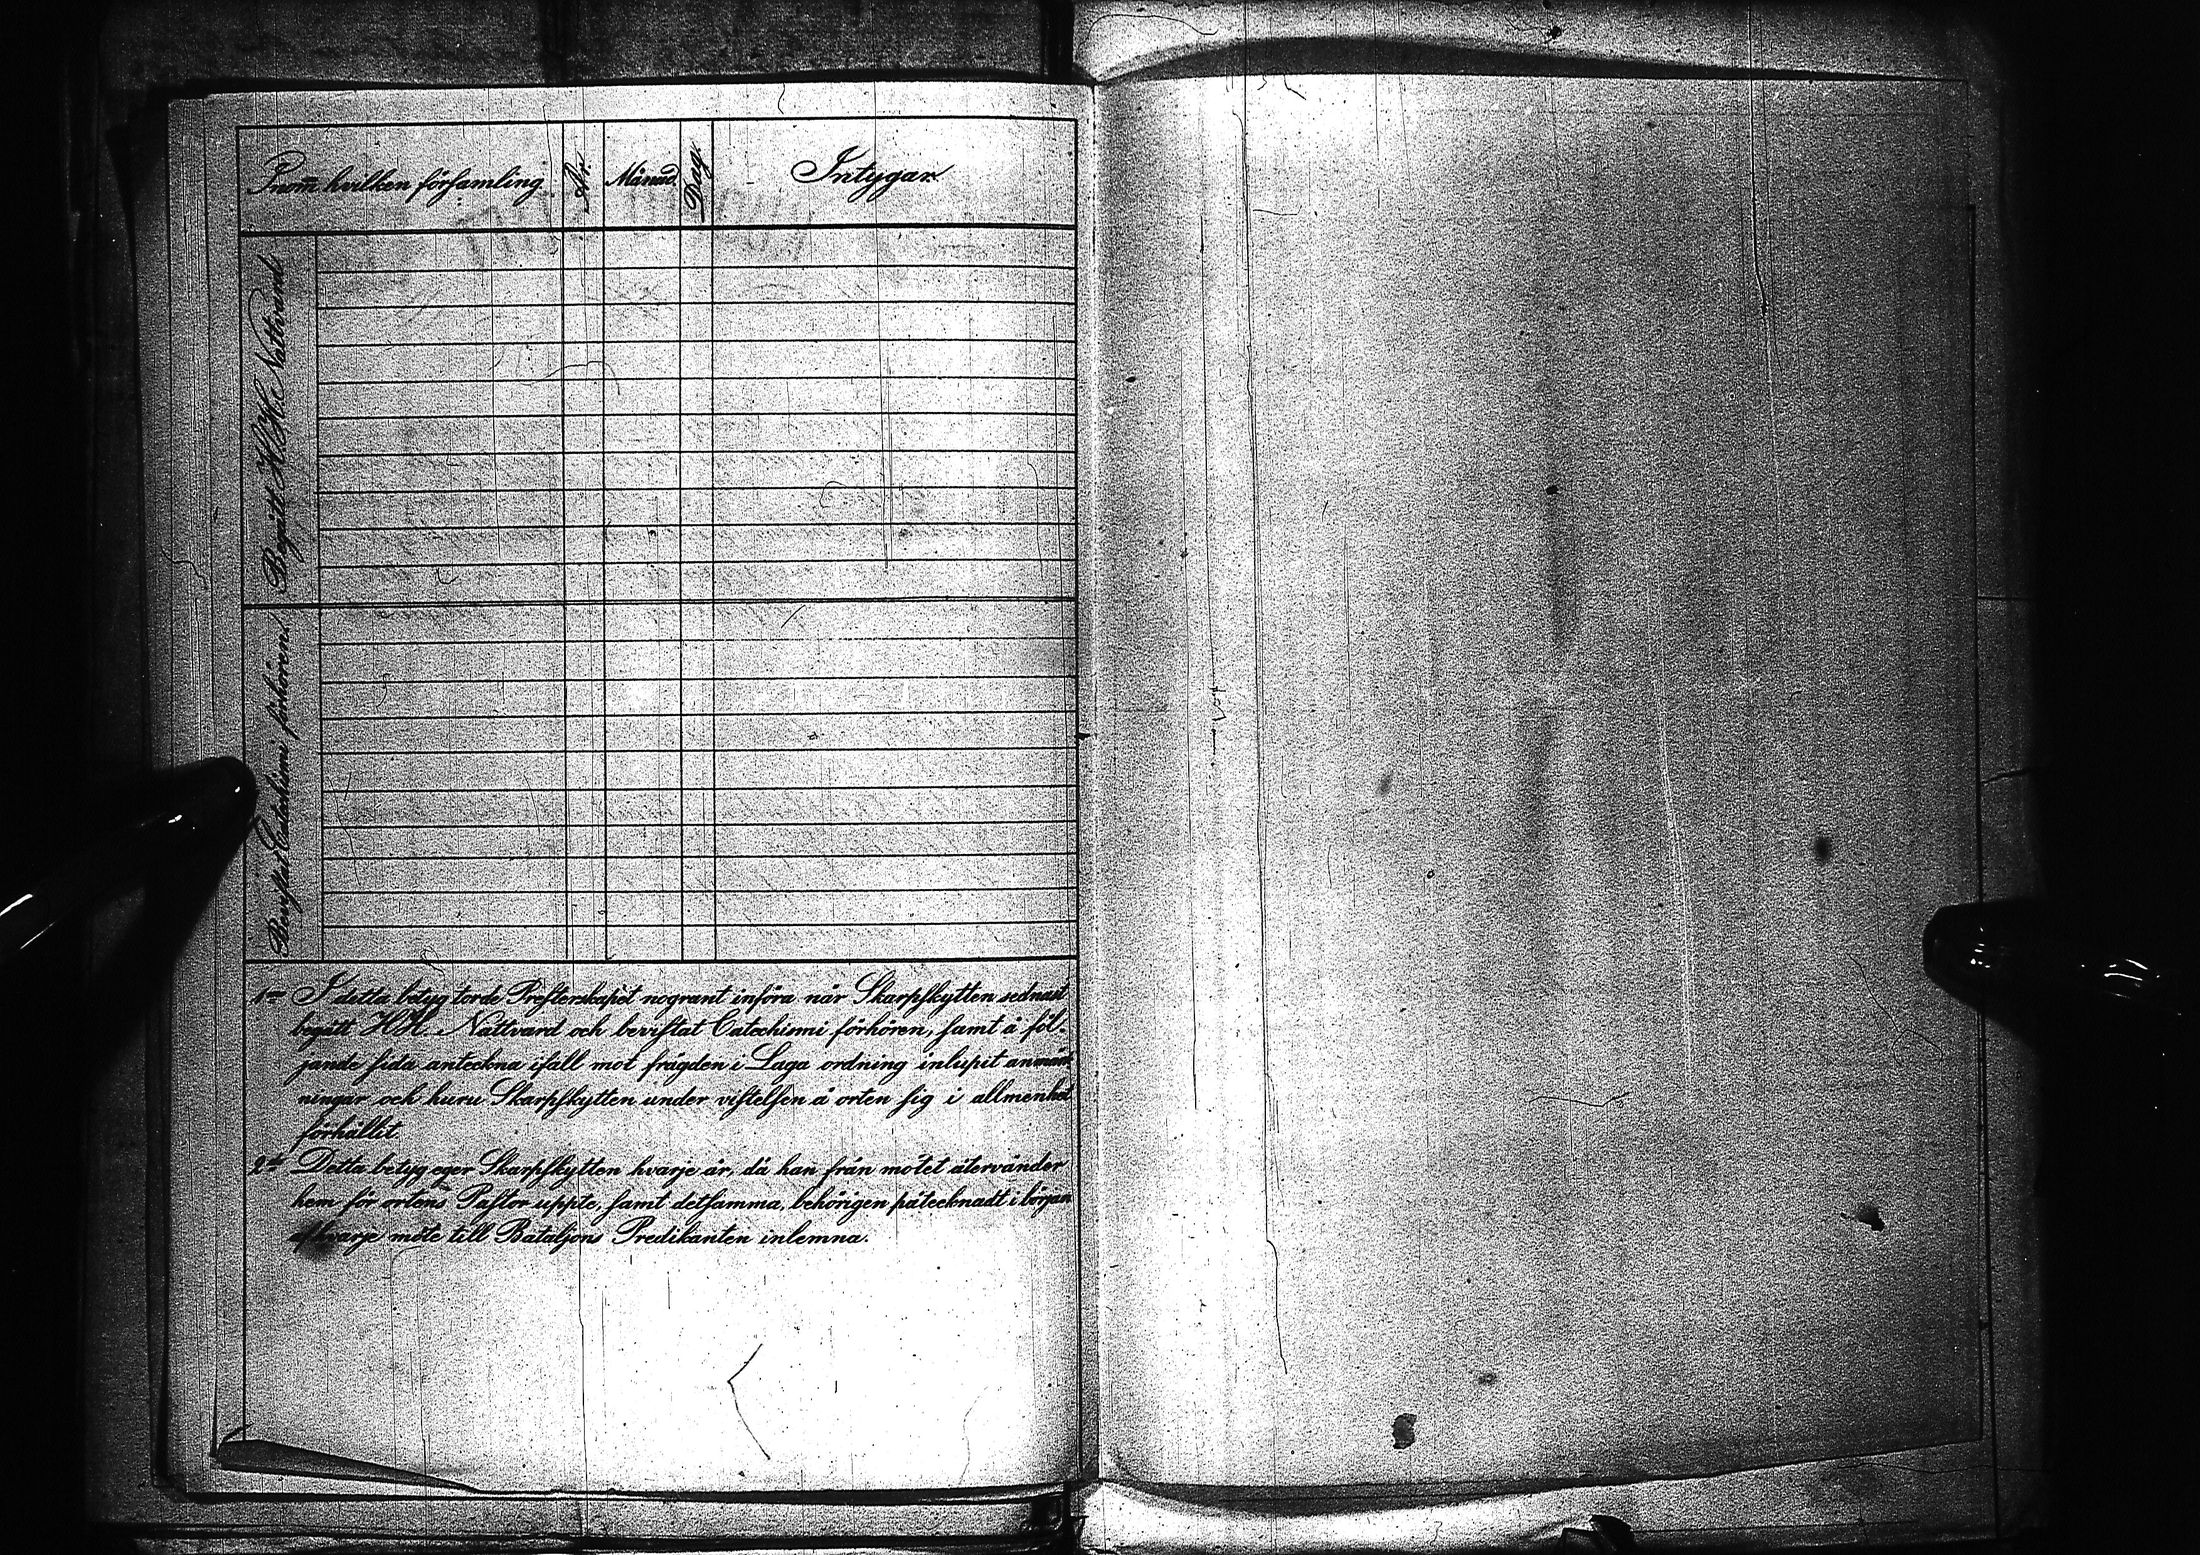 Inom hvilken församling
År.
Månad.
Dag.
Intygar
Begått H.H. Nattvard
Bevistat Catechismi förhören.
1o I detta betyg torde Presterskapet nogrant införa när Skarpskytten sednast
begått H.H. Nattvard och bevistat Catechismi förhören, samt å föl-
jande sida anteckna ifall mot frägden i Laga ordning inlupit anmärk
ningar och huru Skarpskytten under vistelsen å orten sig i allmenhet
förhållit
2o Detta betyg eger Skarpskytten hvarje år, då han från mötet återvänder
hem för ortens Pastor uppte, samt detsamma, behörigen påtecknadt i början
af hvarje möte till Bataljons Predikanten inlemna.